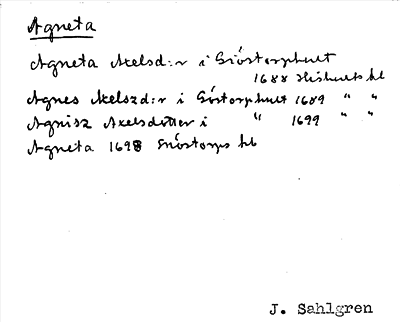 Agneta
Agneta Axelsd:r i Gióstorphult
1688 Hishults kb
Agnes Axelszd:r i Góstorphult 1689 " "
Agnisz Axelsdotter i " 1699 " "
Agneta 1698 kb
J. Sahlgren